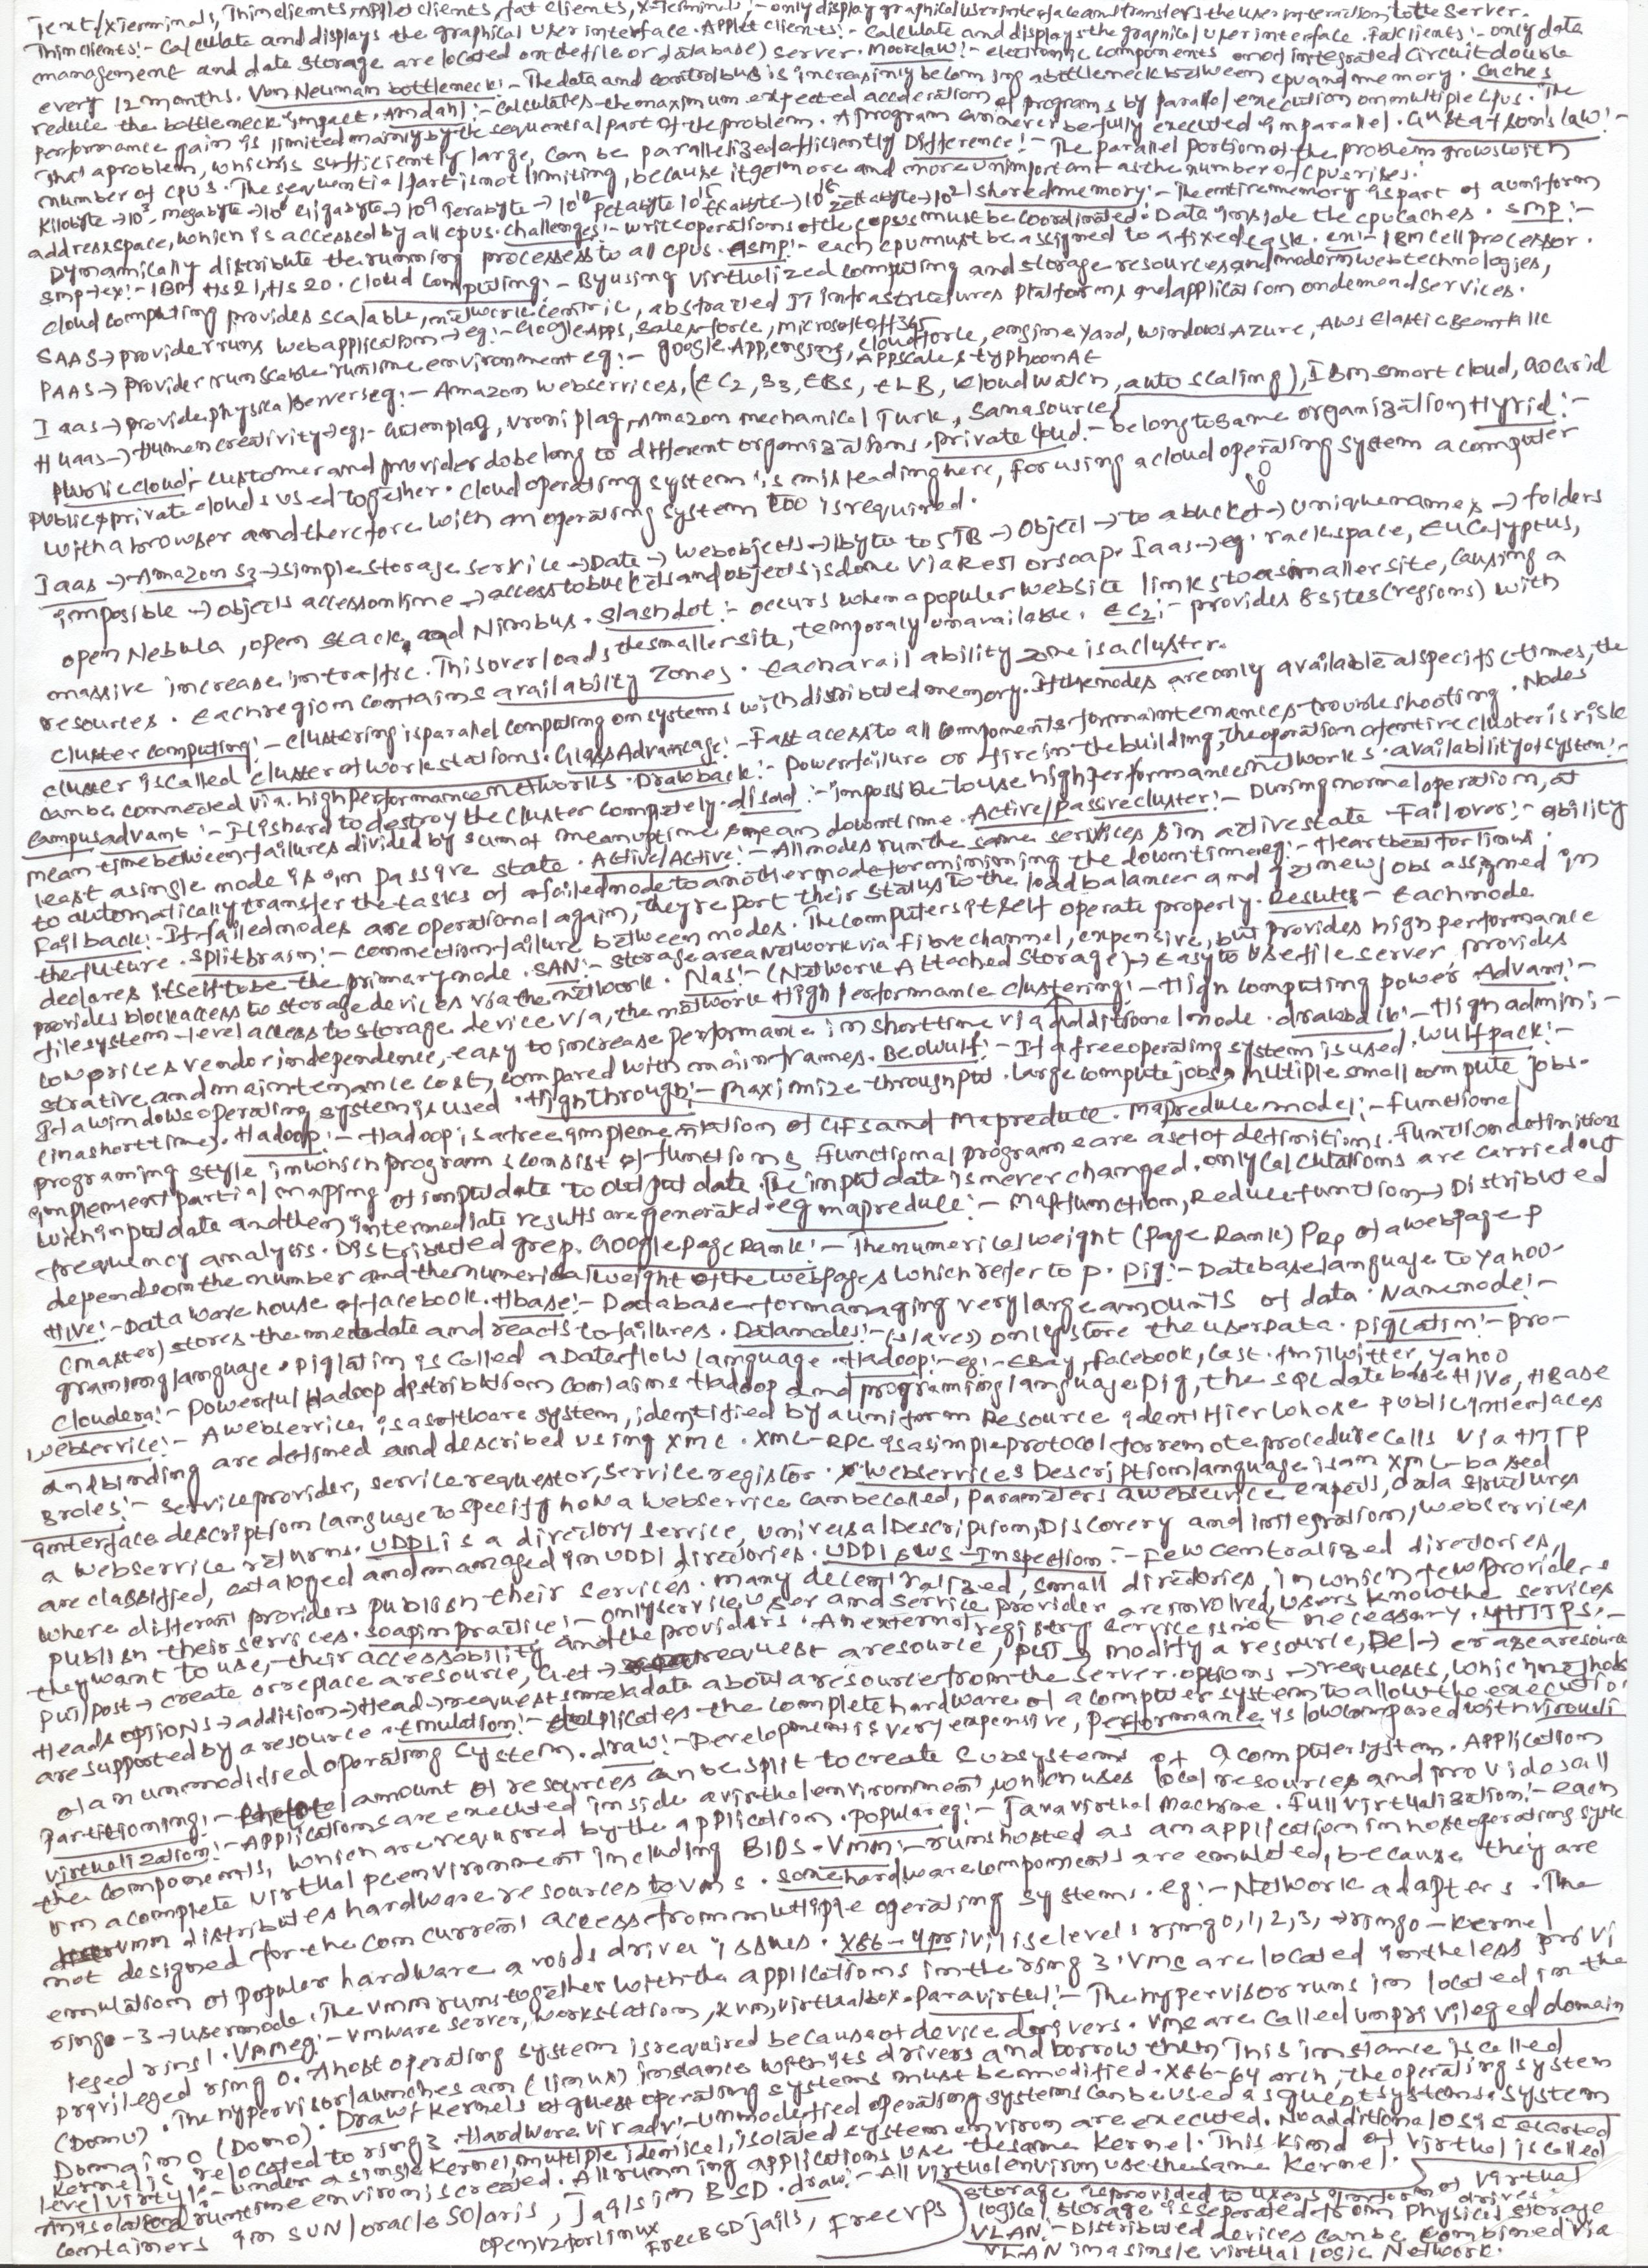 Text/xTerminals, Thin clients, Applet clients, fat clients, X-Terminals:- only display graphical user interface and transfers the user interaction to the server.
Thin clients:- Calculate and displays the graphical user interface. Applet clients:- Calculate and displays the graphical user interface. Fat clients:- only data
management and data storage are located on the file or database) server. Moore law:- electronic components and integrated circuit double
every 12 months. Von Neuman bottleneck:- The data and control bus is increasinly becoming a bottleneck between cpu and memory. Caches
reduce the bottleneck impact. Amdahl:- calculates the maximum expected acceleration of programs by parallel execution on multiple cpus. The
performance gain is limited mainly by the sequential part of the problem. A program can never be fully executed in parallel. Gustafson's law:-
that a problem, which is sufficiently large, can be parallelized efficiently Difference:- The parallel portion of the problem grows with
number of cpus. The sequential part is not limiting, because it get more and more unimportant as the number of cpus rises.
Kilobyte→10³, megabyte→10⁶ Gigabyte→10⁹ Terabyte→10¹² Petabyte 10¹⁵ Exabyte→10¹⁸ Zettabyte→10²¹ shared memory:- The entire memory is part of a uniform
address space, which is accessed by all cpus. challenges:- write operations of the cpus must be coordinated. Data inside the cpu caches. SMP:-
Dynamically distribute the running processes to all cpus. asmp:- each cpu must be assigned to a fixed task. ex:- IBM cell processor.
smp→ex:- IBM HS21, HS20. cloud computing:- By using virtualized computing and storage resources and modern web technologies,
cloud computing provides scalable, network centric, abstracted IT infrastructures platforms and application on demand services.
SAAS→provider runs web application→eg:- Google Apps, salesforce, microsoft off 365
PAAS→provider runs scalable runtime environment eg:- google App engine, cloud force, engine Yard, windows Azure, AWS Elastic Beanstalk Appscale & typhoonAE
Iaas→provide physical servers eg:- Amazon webservices, (EC2, S3, EBS, ELB, cloud watch, auto scaling), IBM smart cloud, Gogrid
Huaas→Human creativity→eg:- Guttenplag, Vroniplag, Amazon mechanical Turk, Samasource
public cloud:- customer and provider do belong to different organizations. private cloud:- belong to same organization Hybrid:-
public & private clouds used together. cloud operating system is misleading here, for using a cloud operating system a computer
with a browser and therefore with an operating system too is required.
Iaas→Amazon S3→simple storage service→Data→webobjects→1byte to 5TB→Object→to a bucket→Unique names→folders
impossible→objects access on time→access to buckets and objects is done via REST or soap. Iaas→eg: rackspace, Eucalyptus,
open Nebula, open stack, and Nimbus. Slashdot:- occurs when a popular website links to a smaller site, causing a
massive increase in traffic. This overloads the smaller site, temporaly unavailable. EC2:- provides 8 sites (regions) with
resources. Each region contains availability zones. Each availability zone is a cluster.
Cluster computing:- clustering is parallel computing on systems with distributed memory. If the nodes are only available at specific times, the
cluster is called cluster of workstations. Glass Advantage:- Fast acess to all components for maintenances troubleshooting. Nodes
can be connected via high performance networks. Drawback:- Power failure or fire in the building, the operation of entire cluster is risk
Campus advant:- It is hard to destroy the cluster completely. disad:- impossible to use high performance networks. availability of system:-
mean time between failures divided by sum of mean uptime & mean downtime. Active/passive cluster:- During normal operation, at
least a single node is in passive state. Active/Active:- All nodes run the same services & in active state Failover:- ability
to automatically transfer the tasks of a failed node to another node for minimising the downtime eg:- Heartbeat for linux.
Failback:- If failed nodes are operational again, they report their status to the load balancer and get new jobs assigned in
the future. Splitbrain:- connection failure between nodes. The computers itself operate properly. Results- Each node
declares itself to be the primary node. SAN:- storage area Network via fibre channel, expensive, but provides high performance
provides block access to storage devices via the network. Nas:- (Network Attached Storage)→ Easy to use file server, provides
filesystem-level access to storage device via, the network High performance clustering:- High computing power Advan:-
low prices vendor independence, easy to increase performance in short time via additional node. drawback:- High admini-
strative and maintenance cost, compared with mainframes. Beowulf:- If a free operating system is used. Wulfpack:-
If a windows operating system is used. High through:- Maximize throughput. large compute jobs, multiple small compute jobs.
(in a short time). Hadoop:- Hadoop is a free implementation of GFS and Mapreduce. Mapreduce model:- functional
programing style in which program s consist of functions, functional program e are a set of definitions. function definitions
implement partial maping of input data to output data. The input data is never changed. only calculations are carried out
with input data and then intermediate results are generated. eg mapreduce:- Map function, Reduce function→ Distributed
frequency analysis. Distributed grep. Google page Rank:- The numerical weight (page Rank) PRp of a webpage p
depends on the number and the numerical weight of the webpages which refer to p. Pig:- Database language to Yahoo.
Hive:- Data ware house of facebook. Hbase:- Database for managing very large amounts of data. Namenode:-
(master) stores the metadata and reacts to failures. Datanodes:- (slaves) only store the userdata. piglatin:- pro-
graming language. piglatin is called a Data flow language. Hadoop:- eg:- EBay, facebook, Last.fm, twitter, yahoo
Cloudera:- Powerful Hadoop distribution contains Hadoop and programing language Pig, the SQL database Hive, HBase
Webservice:- A webservice is a software system, identified by a uniform Resource identifier whose public interfaces
and binding are defined and described using XML. XML-RPC is a simple protocol for remote procedure calls via HTTP
3 roles:- service provider, service requestor, service register. Webservices Description language is an XML-based
interface description language to specify how a webservice can be called, parameters a webservice expects, data structures
a webservice returns. UDDI is a directory service, Universal Description, Discovery and integration, webservices
are classified, cataloged and managed in UDDI directories. UDDI & WS-Inspection:- Few centralized directories,
where different providers publish their services. many decentralized, small directories, in which few providers
publish their services. soap in practice:- only service user and service provider are involved, users know the services
they want to use, their accessability and the providers. An external registry service is not necessary. 4HTTPS:-
put/post→ create or replace a resource, Get→ request a resource, put→ modify a resource, Del→ erase a resource
Heads options→addition→Head→requests metadata about a resource from the server. options→requests, which methods
are supported by a resource. Emulation:- duplicates the complete hardware of a computer system to allow the executio
of a unmodidied operating system. draw:- Development is very expensive, performance is low compared with virtuali
Partitioning:- total amount of resources can be split to create subsystems of a computersystem. Application
virtualization:- Applications are executed inside a virtual environment, which uses local resources and provides all
the components, which are required by the application. Popular eg:- Java virtual Machine. Full virtualization:- each
vm a complete virtual pc environment including BIOS. Vmm:- runs hosted as an application in host operating syste
vmm distributes hardware resources to VMs. some hardware components are emulated, because they are
not designed for the concurrent access from multiple operating systems. eg:- Network adapters. The
emulation of popular hardware avoids driver issues. X86-4 privilise levels ring 0, 1, 2, 3, →ring0-kernel
ringo-3→usermode. The vmm runs together with the applications in the ring 3. VMs are located in the less privi
leged ring 1. VMMeg:- vmware server, workstation, kvm, virtualbox. Paravirtul:- The hypervisor runs in located in the
privileged ring 0. A host operating system is required because of device drivers. VMs are called unprivileged domain
(DomU). The hypervisor launches an (linux) instance with its drivers and borrow them This instance is called
Domain 0 (Dom0). Draw:- Kernels of guest operating systems must be modified. X86-64 arch, the operating system
kernel is relocated to ring 3. Hardware vir adv:- Unmodefied operating systems can be used as guest systems. system
level virty:- Under a single kernel, multiple identical, isolated system environ are executed. No additional os is started
An isolated runtime environ is created. All running applications use the same kernel. This kind of virtual is called
containers in SUN/oracle Solaris, Jails in BSD. draw:- All virtual environ use the same kernel.
openvz for linux FreeBSD jails, FreeVPS
storage is provided to users in form of virtual drives.
logical storage is separated from physical storage
VLAN:- Distributed devices can be combined via
VLAN in a single virtual logic Network.